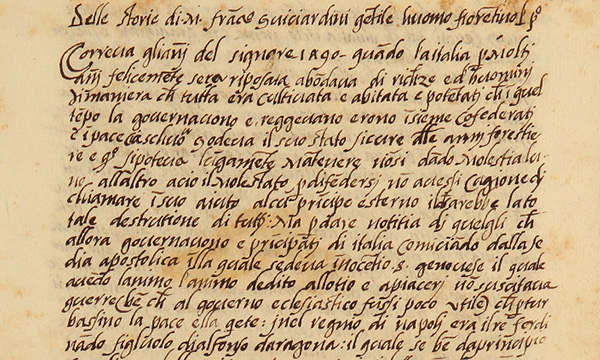 Delle storie di M. franc̄o Guicciardini gētile huomo fiorētino l pº
Correuā gli anni del signore 1490 quādo la italia p molti
anj felicemēte s era riposata abōdaua di richeze e d huominj
di maniera ch̄ tutta era cultiuata e abitata e potētati ch̄ ī quel
tēpo la gouernauono e reggeuano erono īsieme cōfederati
e ī pace ciascheduno godeua il suo stato sicuro dalle armi forestie
re e qº si poteua lūgamēte mātenere nō si dādo molestia lu
no all altro acio il molestato p difēdersi nō auessi cagione di
chiamare ī suo aiuto alcū prīcipe esterno il che sarebbe stato
tale destrutione di tutti: Ma p dare notitia di quegli ch̄
allora gouernauono e prīcipati di italia comīciādo dalla se
dia apostolica ī sulla quale sedeua īnocētio 8. genouese il quale
auēdo l animo l animo dedito all otio e a piacerj nō suscitaua
guerre che ch̄ al gouerno eclesiastico fussi poco utile ch̄ ptur
bassino la pace ella gēte: jnel regnio di napoli era il re ferdi
nādo figliuolo di alfonso d aragona: il quale se bē da prīncipio